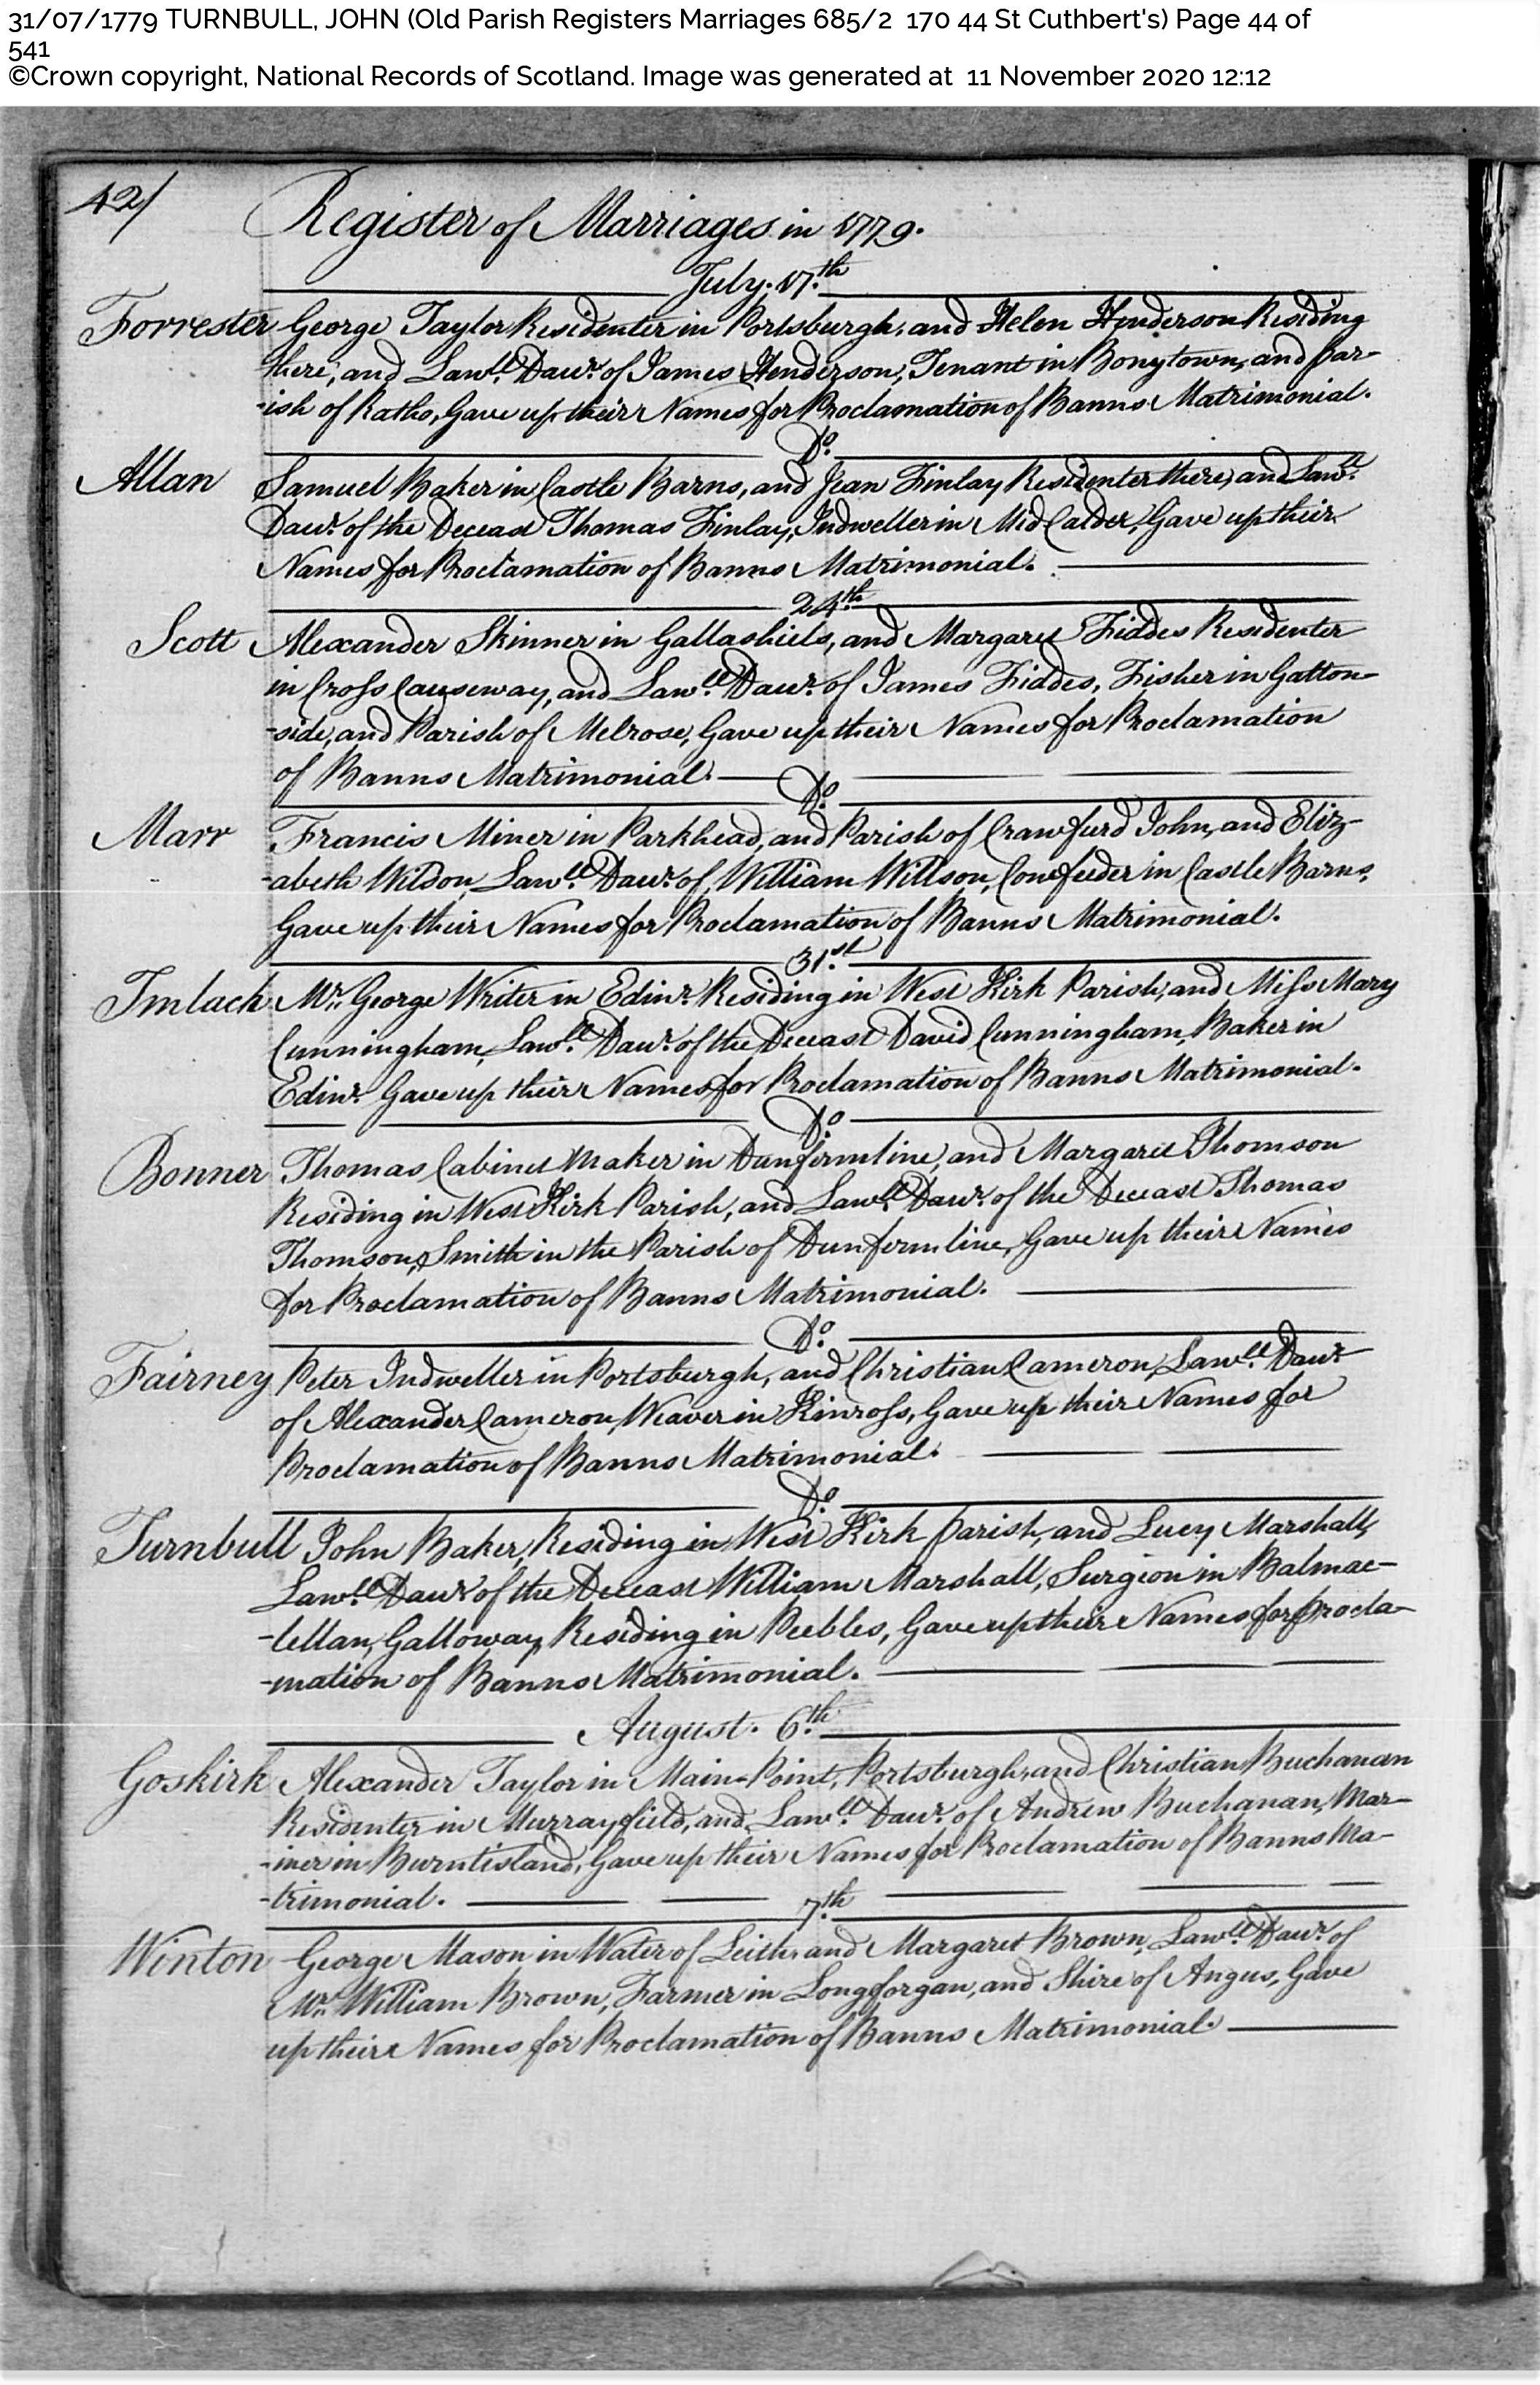 31/07/1779 TURNBULL, JOHN (Old Parish Registers Marriages 685/2  170 44 St Cuthbert's) Page 44 of
541
©Crown copyright, National Records of Scotland. Image was generated at  11 November 2020 12:12
42/
Register of Marriages in 1779.
July. 17.th
Forrester George Taylor Residenter in Portsburgh, and Helen Henderson Residing
there, and Law.ll Daur. of James Henderson, Tenant in Bonytown, and par-
-ish of Ratho, Gave up their Names for Proclamation of Banns Matrimonial.
D.o
Allan Samuel Baker in Castle Barns, and Jean Finlay Residenter there, and Law.ll
Daur. of the Deceast Thomas Finlay, Indweller in Mid Calder, Gave up their
Names for Proclamation of Banns Matrimonial.
24.th
Scott Alexander Skinner in Gallashiels, and Margaret Fiddes Residenter
in Cross Causeway, and Law.ll Daur. of James Fiddes, Fisher in Gatton-
-side, and Parish of Melrose, Gave up their Names for Proclamation
of Banns Matrimonial.
D.o
Marr Francis Miner in Parkhead, and Parish of Crawfurd John, and Eliz-
-abeth Wilson, Law.ll Daur. of William Willson, Cowfeeder in Castle Barns,
Gave up their Names for Proclamation of Banns Matrimonial.
31.st
Imlach Mr. George Writer in Edinr. Residing in West Kirk Parish, and Miss Mary
Cunningham, Law.ll Daur. of the Deceast David Cunningham, Baker in
Edinr. Gave up their Names for Proclamation of Banns Matrimonial.
D.o
Bonner Thomas Cabinet Maker in Dunfirmline, and Margaret Thomson
Residing in West Kirk Parish, and Law.ll Daur. of the Deceast Thomas
Thomson, Smith in the Parish of Dunfermline, Gave up their Names
for Proclamation of Banns Matrimonial.
D.o
Fairney Peter Indweller in Portsburgh, and Christian Cameron, Law.ll Daur.
of Alexander Cameron, Weaver in Kinross, Gave up their Names for
Proclamation of Banns Matrimonial.
D.o
Turnbull John Baker, Residing in West Kirk parish, and Lucy Marshall,
Law.ll Daur. of the Deceast William Marshall, Surgion in Balmac-
-lellan, Galloway, Residing in Peebles, Gave up their Names for Procla-
-mation of Banns Matrimonial.
August. 6.th
Goskirk Alexander Taylor in Main-Point, Portsburgh, and Christian Buchanan
Residenter in Murrayfield, and Law.ll Daur. of Andrew Buchanan, Mar-
-iner in Burntisland, Gave up their Names for Proclamation of Banns Ma-
-trimonial.
7.th
Winton George Mason in Water of Leith, and Margaret Brown, Law.ll Daur. of
Mr. William Brown, Farmer in Longforgan, and Shire of Angus, Gave
up their Names for Proclamation of Banns Matrimonial.